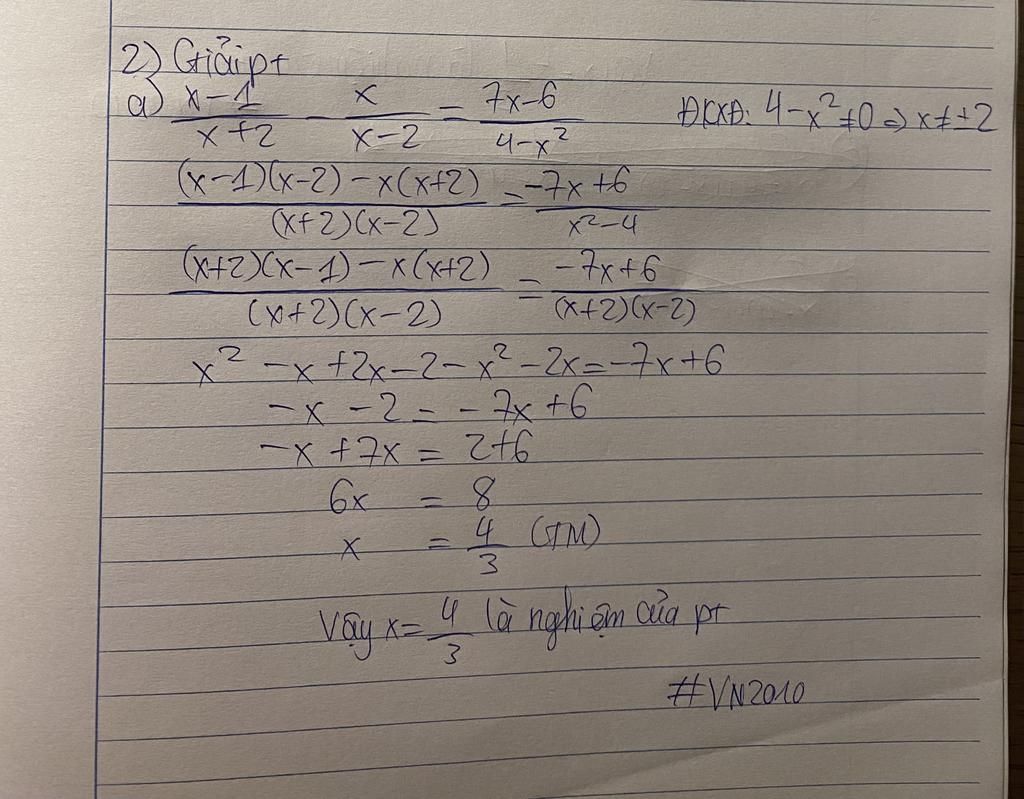 2) Giải pt
a) \frac{x-1}{x+2} - \frac{x}{x-2} = \frac{7x-6}{4-x^2} ĐKXĐ: 4-x^2≠0 => x≠±2
\frac{(x-1)(x-2)-x(x+2)}{(x+2)(x-2)} = \frac{-7x+6}{x^2-4}
\frac{(x+2)(x-1)-x(x+2)}{(x+2)(x-2)} = \frac{-7x+6}{(x+2)(x-2)}
x^2 -x+2x-2-x^2-2x=-7x+6
-x-2=-7x+6
-x+7x=2+6
6x = 8
x = \frac{4}{3} (TM)
Vậy x=\frac{4}{3} là nghiệm của pt
#VN2010